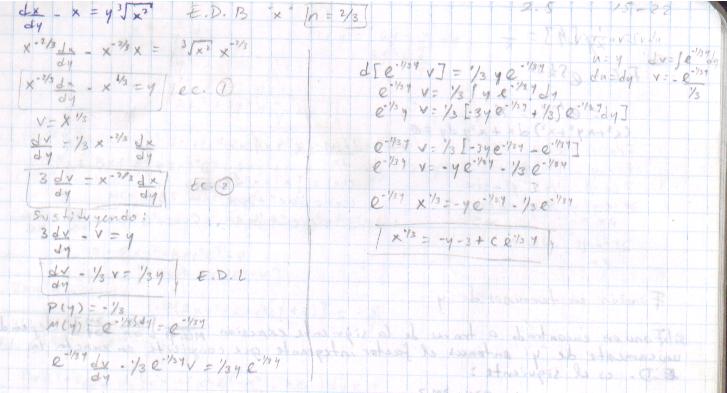 dx/dy - x = y ∛x²   E.D.B "x" n = 2/3
x^-2/3 dx/dy - x^-2/3 x = ∛x² x^-2/3
x^-2/3 dx/dy - x^1/3 = y   ec. ①
v = x^1/3
dv/dy = 1/3 x^-2/3 dx/dy
3 dv/dy = x^-2/3 dx/dy   Ec. ②
Sustituyendo:
3 dv/dy - v = y
dv/dy - 1/3 v = 1/3 y   E.D.L
P(y) = -1/3
M(y) = e^-1/3∫dy = e^-1/3y
e^-1/3y dv/dy - 1/3 e^-1/3y v = 1/3 y e^-1/3y
u = y   dv = ∫e^-1/3y
d[e^-1/3y v] = 1/3 y e^-1/3y   du = dy   v = -e^-1/3y / 1/3
e^-1/3y v = 1/3 ∫ y e^-1/3y dy
e^-1/3y v = 1/3 [-3y e^-1/3y + 1/3 ∫e^-1/3y dy]
e^-1/3y v = 1/3 [-3y e^-1/3y - e^-1/3y]
e^-1/3y v = -y e^-1/3y - 1/3 e^-1/3y
e^-1/3y x^1/3 = -y e^-1/3y - 1/3 e^-1/3y
x^1/3 = -y - 3 + C e^1/3y